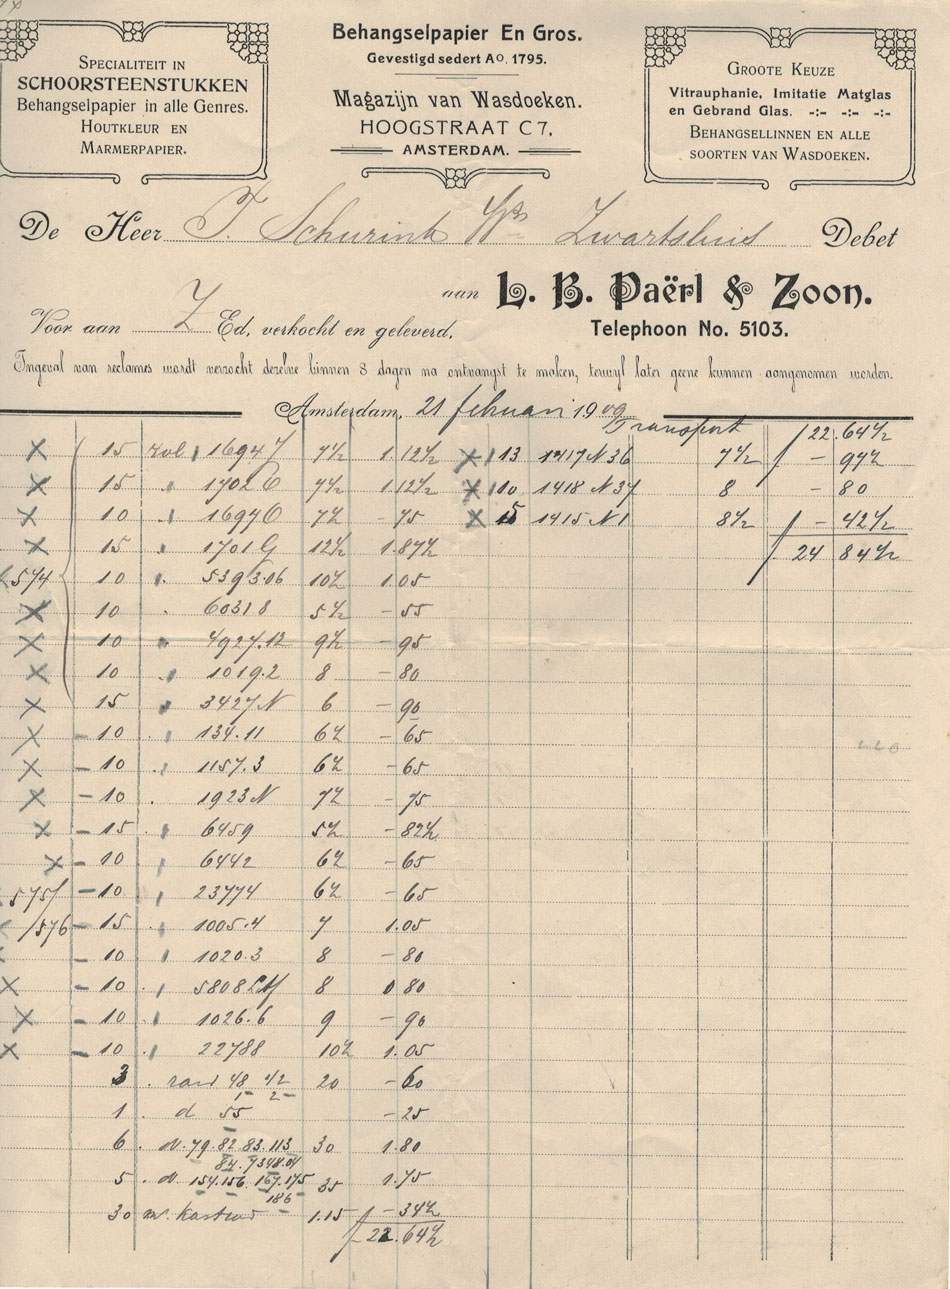 SPECIALITEIT IN
SCHOORSTEENSTUKKEN
Behangselpapier in alle Genres.
HOUTKLEUR EN
MARMERPAPIER.
Behangselpapier En Gros.
Gevestigd sedert Ao. 1795.
Magazijn van Wasdoeken.
HOOGSTRAAT C 7,
AMSTERDAM.
GROOTE KEUZE
Vitrauphanie, Imitatie Matglas
en Gebrand Glas. -:- -:- -:-
BEHANGSELLINNEN EN ALLE
SOORTEN VAN WASDOEKEN.
De Heer T. Schurink Zwartsluis Debet
aan L. B. Paërl & Zoon.
Voor aan Z Ed. verkocht en geleverd.
Telephoon No. 5103.
Ingeval van reclames wordt verzocht dezelve binnen 8 dagen na ontvangst te maken, terwyl later geene kunnen aangenomen worden.
Amsterdam, 21 februari 1909
X 15 rol 1694 7 7½ 1.12½
X 15 " 1702 C 7½ 1.12½
X 10 " 1694 C 7½ - 75
X 15 " 1701 G 12½ 1.87½
574 10 " 5393.06 10½ 1.05
X 10 " 6031.8 5½ - 55
X 10 " 4927.12 9½ - 95
X 10 " 1019.2 8 - 80
X 15 " 3427 N 6 - 90
X - 10 " 134.11 6½ - 65
X - 10 " 1157.3 6½ - 65
X - 10 " 1923 N 7½ - 75
X - 15 " 6459 5½ - 82½
X - 10 " 6442 6½ - 65
575 - 10 " 23774 6½ - 65
/576 - 15 " 1005.4 7 1.05
- 10 " 1020.3 8 - 80
X - 10 " 5808 8 0 80
X - 10 " 1026.6 9 - 90
X - 10 " 22788 10½ 1.05
3 " rand 48 42 20 - 60
1- 2-
1 " d 55 - 25
6 " d. 79.82.83.113 30 1.80
84. 7348.01
5 " d. 154.156.167.175 35 1.75
186
30 m. 1.15 - 34½
22.64½
Transport 22.64½
X 13 1417 N 36 7½ - 97½
X 10 1418 N 37 8 - 80
X 5 1415 N 1 8½ - 42½
24 84½